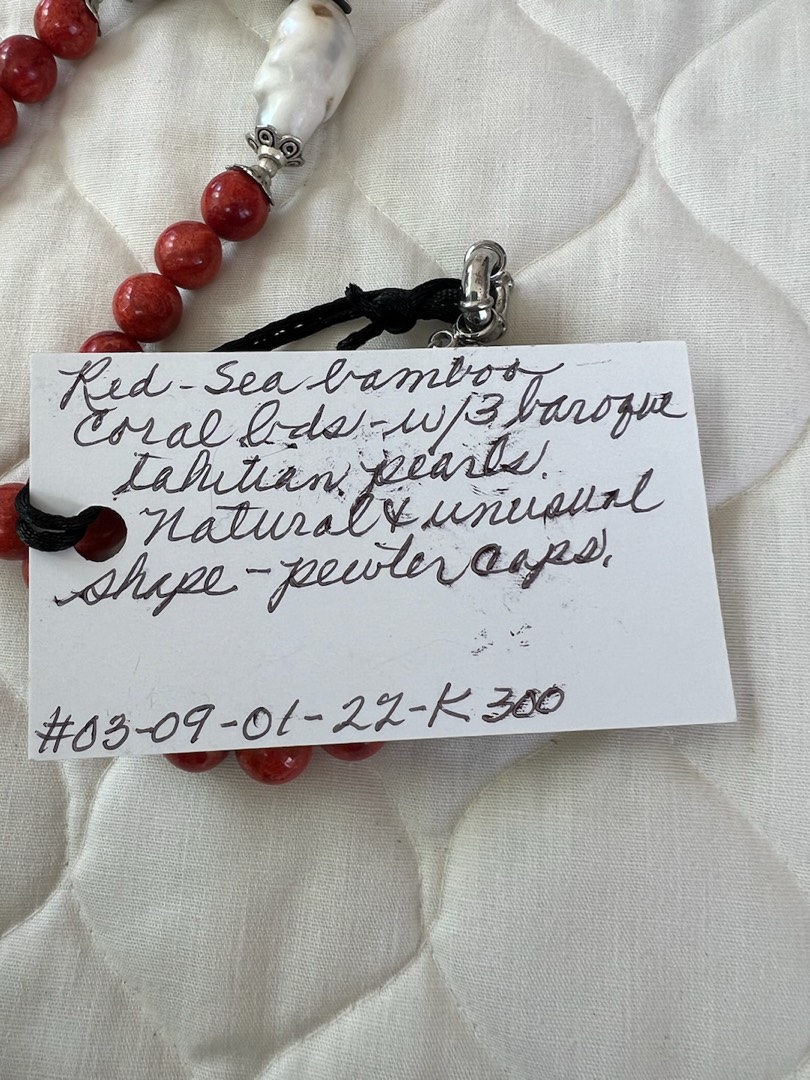 Red-Sea bamboo
Coral bds-w/3 baroque
tahitian pearls.
Natural & unusual
shape-pewter caps.
#03-09-01-22-K300